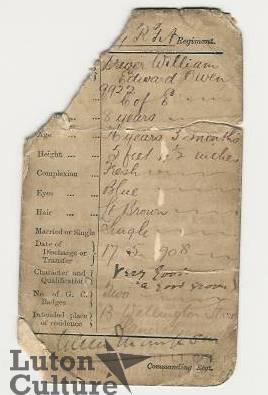 R F A Regiment.
William
Edward Owen
9922
C of E
8 years
Age 5 months
Height 5 feet inches
Complexion Fresh
Eyes Blue
Hair Lt Brown
Married or Single Single
Date of
Discharge or
Transfer
17 5 908
Character and
Qualifications
Very good
a good groom
No. of G. C.
Badges
Two
Intended place
of residence
13 Wellington
Commanding Regt.
Luton
Culture